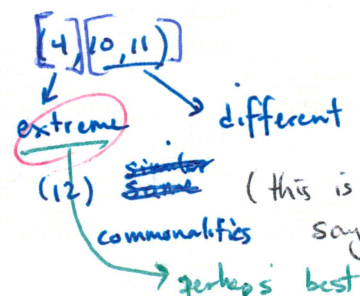 [4],[10,11)]
extreme different
(12) similar same (this is
commonalities say
perhaps best